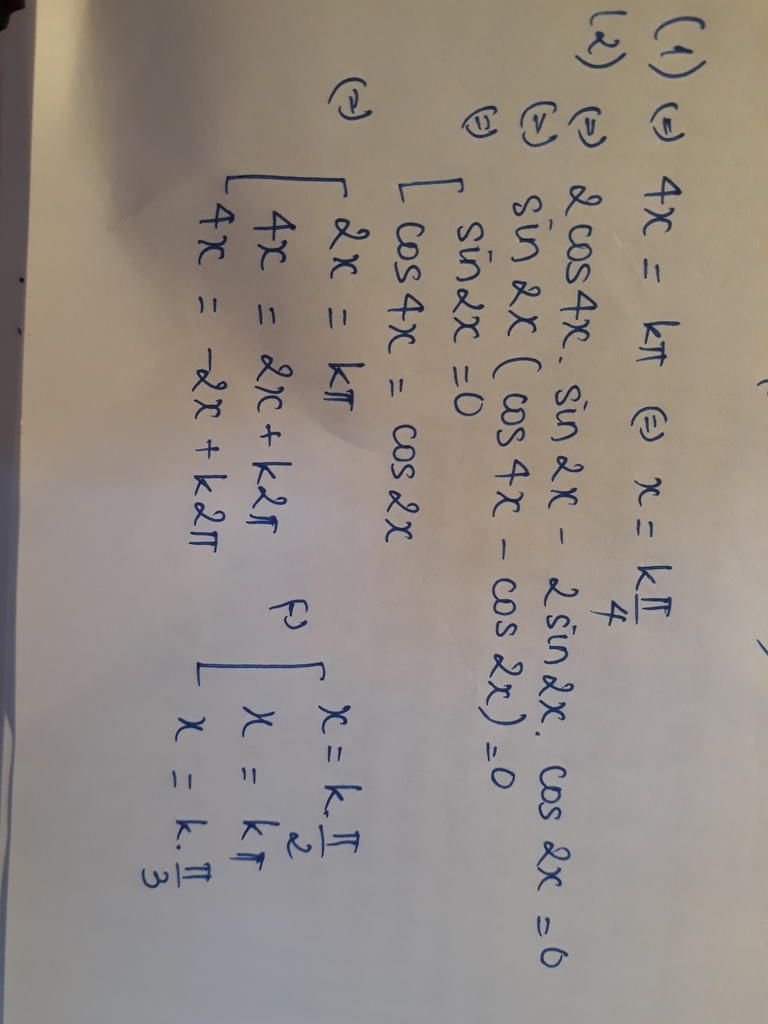 (1) (=) 4x = kπ (=) x = kπ/4
(2) (=) 2cos4x. sin 2x - 2sin2x. cos 2x = 0
(=) sin 2x (cos 4x - cos 2x) = 0
(=) [ sin2x = 0
cos4x = cos2x
(=) [ 2x = kπ
4x = 2x + k2π
4x = -2x + k2π
(=) [ x = k.π/2
x = kπ
x = k.π/3